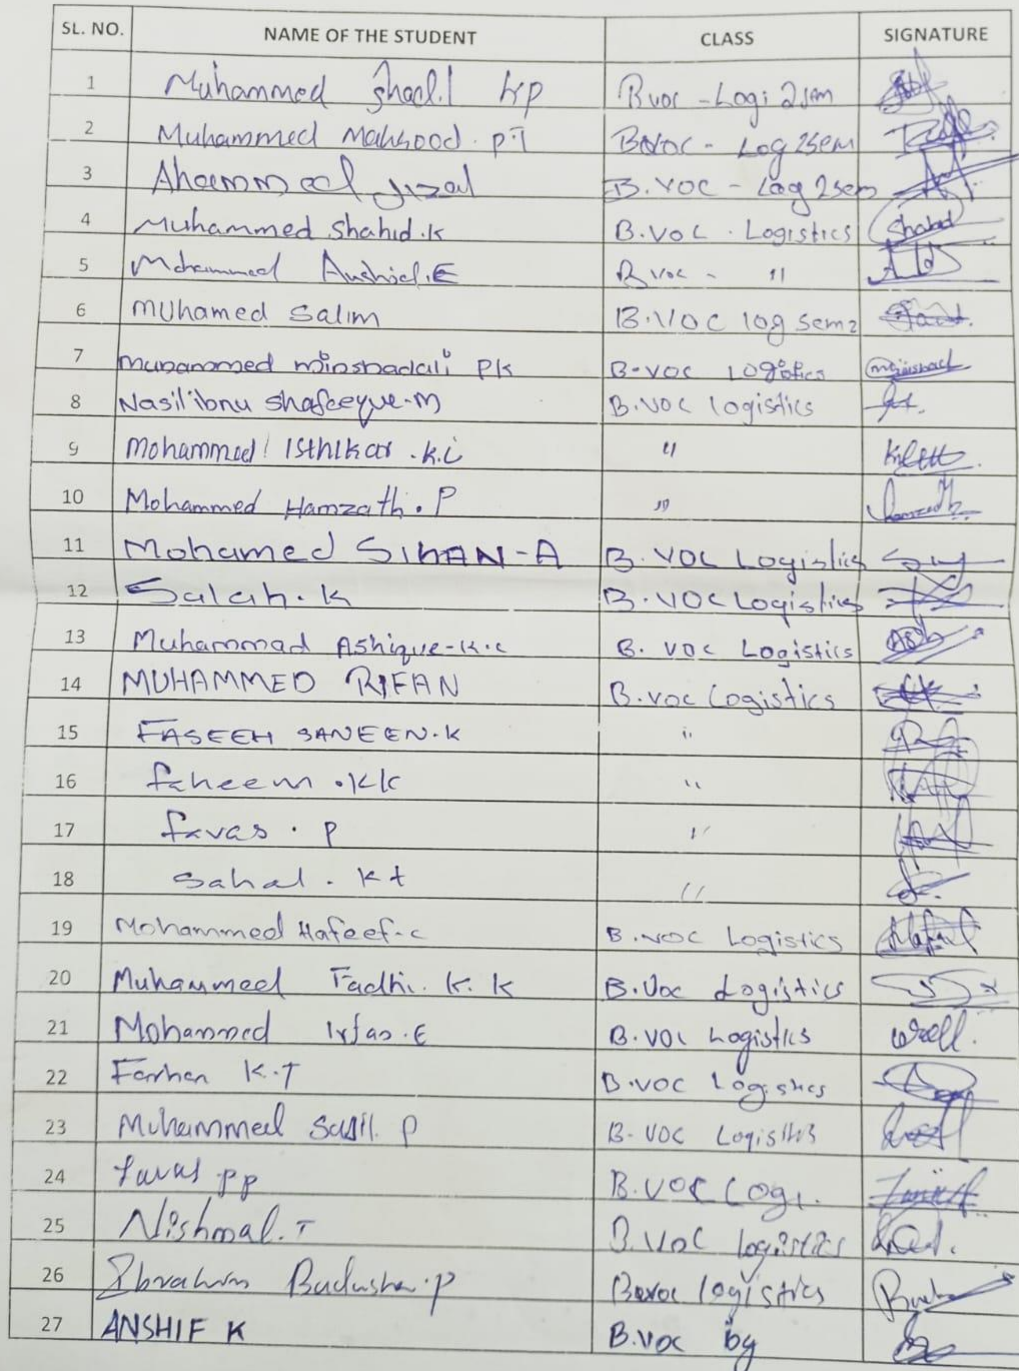 SL. NO. NAME OF THE STUDENT CLASS SIGNATURE
1 Muhammed Shadil kp B.voc - Logi 2sem
2 Muhammed Mahsood. P.T B.voc - Log 2sem
3 Ahammed B.VOC - Log 2sem
4 Muhammed Shahid.K B.VOC . Logistics Shahid
5 Mohammed E B voc - "
6 MUhamed Salim B.VOC log sem2
7 Muhammed minshadali PK B-VOC Logistics
8 Nasil ibnu Shafeeque.M B.VOC logistics
9 Mohammed Isthikar .K.C "
10 Mohammed Hamzath. P "
11 Mohamed SINAN-A B.VOC Logistics
12 Salah.K B.VOC Logistics
13 Muhammad Ashique-K.C B. VOC Logistics
14 MUHAMMED RIFAN B.voc Logistics
15 FASEEH SANEEN.K "
16 faheem .KK "
17 favas . P "
18 Sahal . Kt "
19 Mohammed Hafeef-C B.VOC Logistics
20 Muhammed Fadhi. K.K B.Voc Logistics
21 Mohammed Irfan.E B.VOC Logistics
22 Farhan K.T B.VOC Logistics
23 Muhammed P B-VOC Logistics
24 Favas PP B.VOC Logi.
25 Nishmal.T B.VOC logistics
26 Ibrahim Badusha.P B.voc logistics
27 ANSHIF K B.VOC